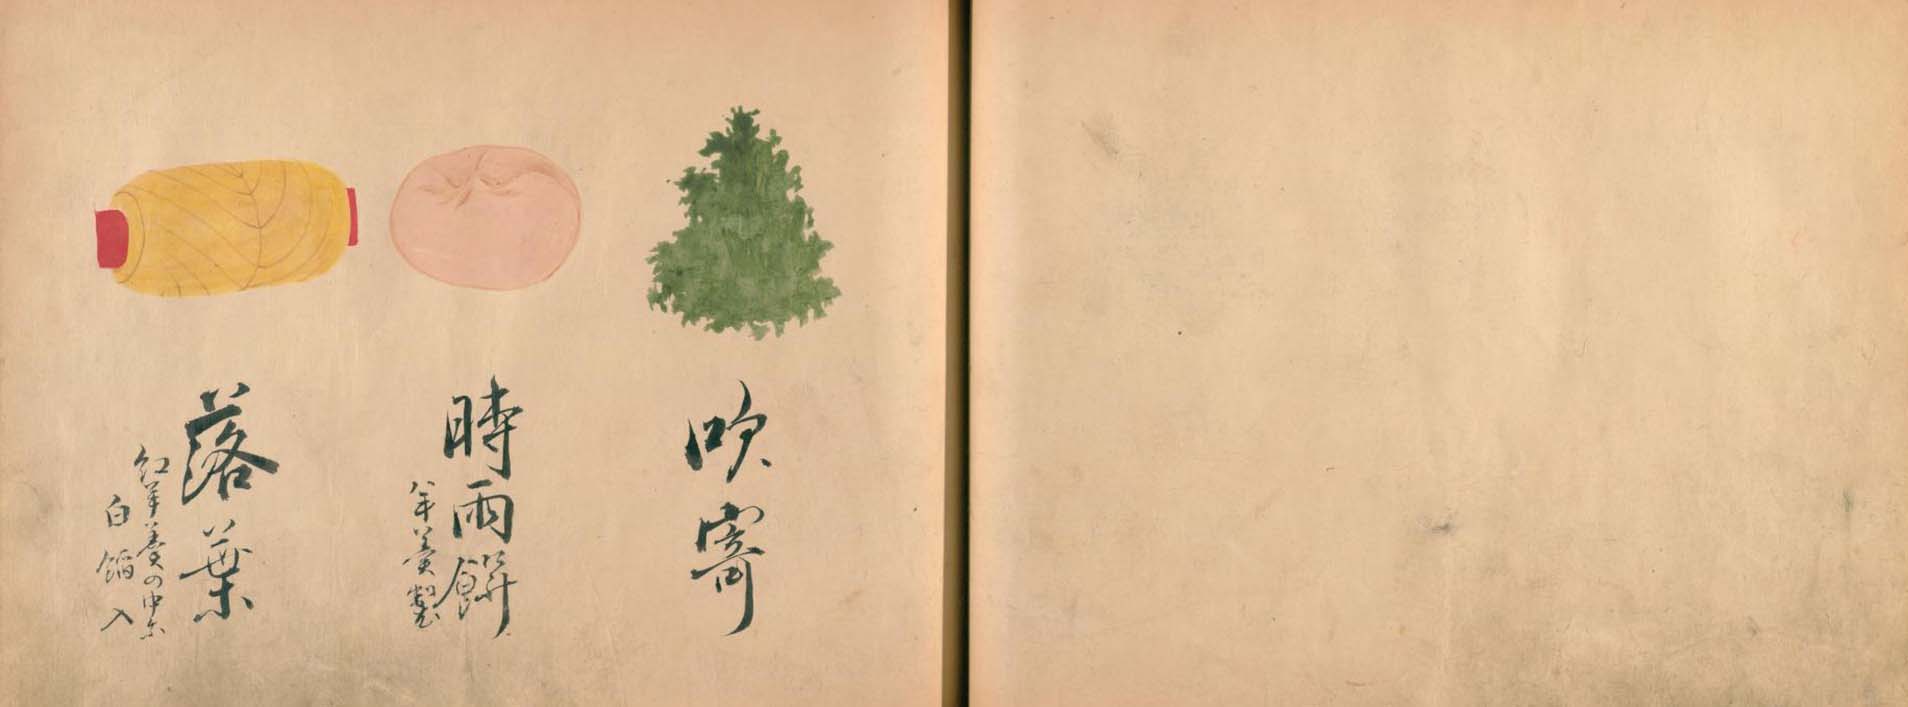 吹寄
時雨餅
羊羹製
落葉
紅羊羹の中に
白餡入